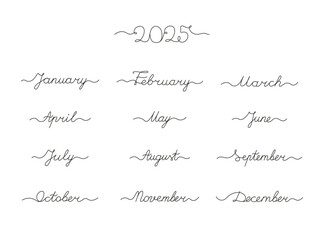 2025
January February March
April May June
July August September
October November December